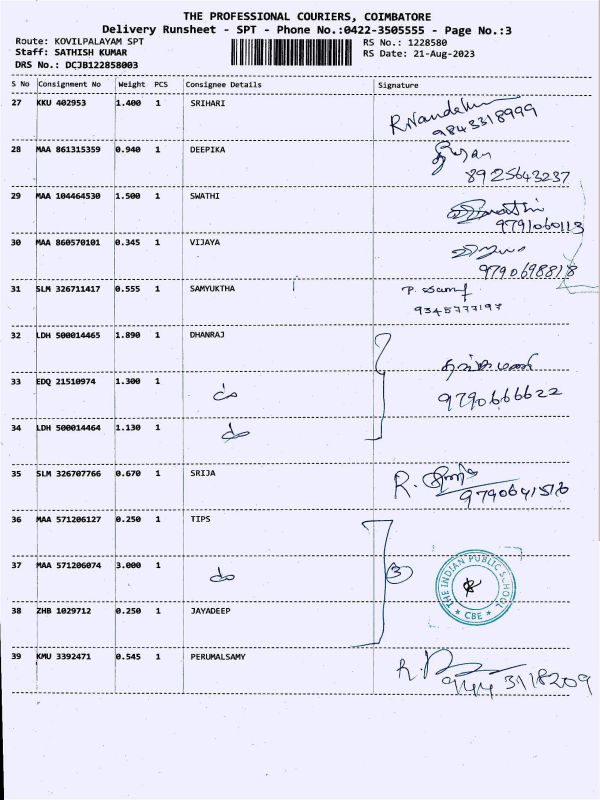 THE PROFESSIONAL COURIERS, COIMBATORE
Delivery Runsheet - SPT - Phone No.:0422-3505555 - Page No.:3
Route: KOVILPALAYAM SPT
RS No.: 1228580
Staff: SATHISH KUMAR
RS Date: 21-Aug-2023
DRS No.: DCJB122858003
S No Consignment No Weight PCS Consignee Details Signature
27 KKU 402953 1.400 1 SRIHARI
9843318999
28 MAA 861315359 0.940 1 DEEPIKA
8925643237
29 MAA 104464530 1.500 1 SWATHI
9791060113
30 MAA 860570101 0.345 1 VIJAYA
9790698818
31 SLM 326711417 0.555 1 SAMYUKTHA
9345777197
32 LDH 500014465 1.890 1 DHANRAJ
33 EDQ 21510974 1.300 1 do
9790666622
34 LDH 500014464 1.130 1 do
35 SLM 326707766 0.670 1 SRIJA R.
36 MAA 571206127 0.250 1 TIPS
37 MAA 571206074 3.000 1 do 3
THE INDIAN PUBLIC SCHOOL
* CBE *
38 ZHB 1029712 0.250 1 JAYADEEP
39 KMU 3392471 0.545 1 PERUMALSAMY
944 3118209